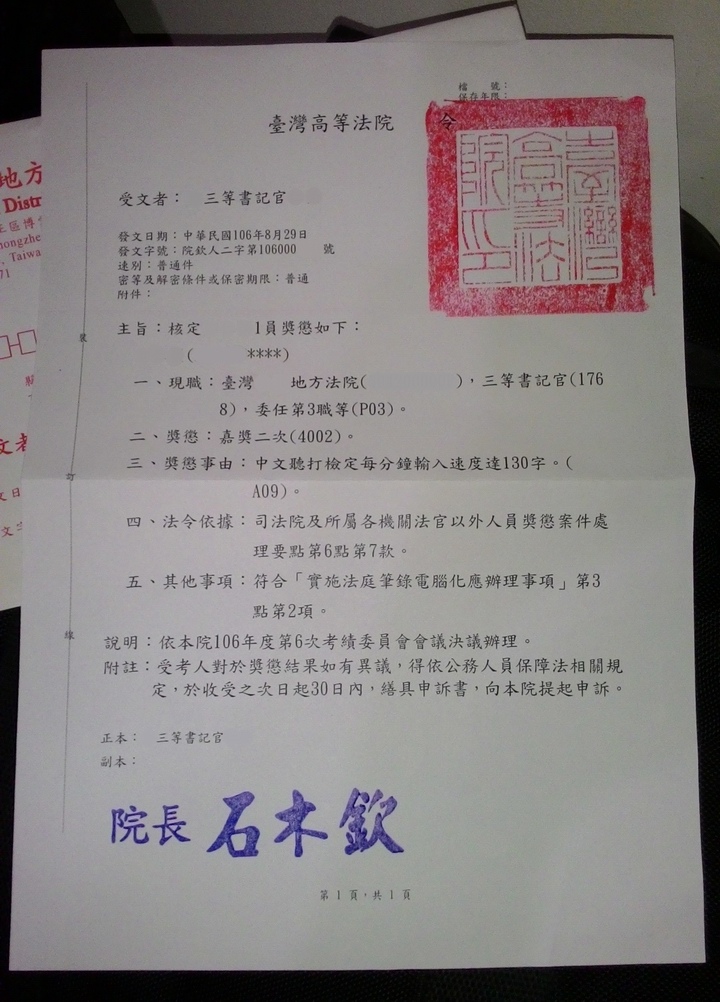 檔　　號：
保存年限：
臺灣高等法院　　令
受文者：　三等書記官
發文日期：中華民國106年8月29日
發文字號：院欽人二字第106000　　號
速別：普通件
密等及解密條件或保密期限：普通
附件：
主旨：核定　　　1員獎懲如下：
(　　　****)
一、現職：臺灣　　地方法院(　　　　　)，三等書記官(176
8)，委任第3職等(P03)。
二、獎懲：嘉獎二次(4002)。
三、獎懲事由：中文聽打檢定每分鐘輸入速度達130字。(
A09)。
四、法令依據：司法院及所屬各機關法官以外人員獎懲案件處
理要點第6點第7款。
五、其他事項：符合「實施法庭筆錄電腦化應辦理事項」第3
點第2項。
說明：依本院106年度第6次考績委員會會議決議辦理。
附註：受考人對於獎懲結果如有異議，得依公務人員保障法相關規
定，於收受之次日起30日內，繕具申訴書，向本院提起申訴。
正本：　三等書記官
副本：
院長 石木欽
第 1 頁，共 1 頁
裝
訂
線
臺灣高等法院印
地方
Distr
正區博
Taiwa
71